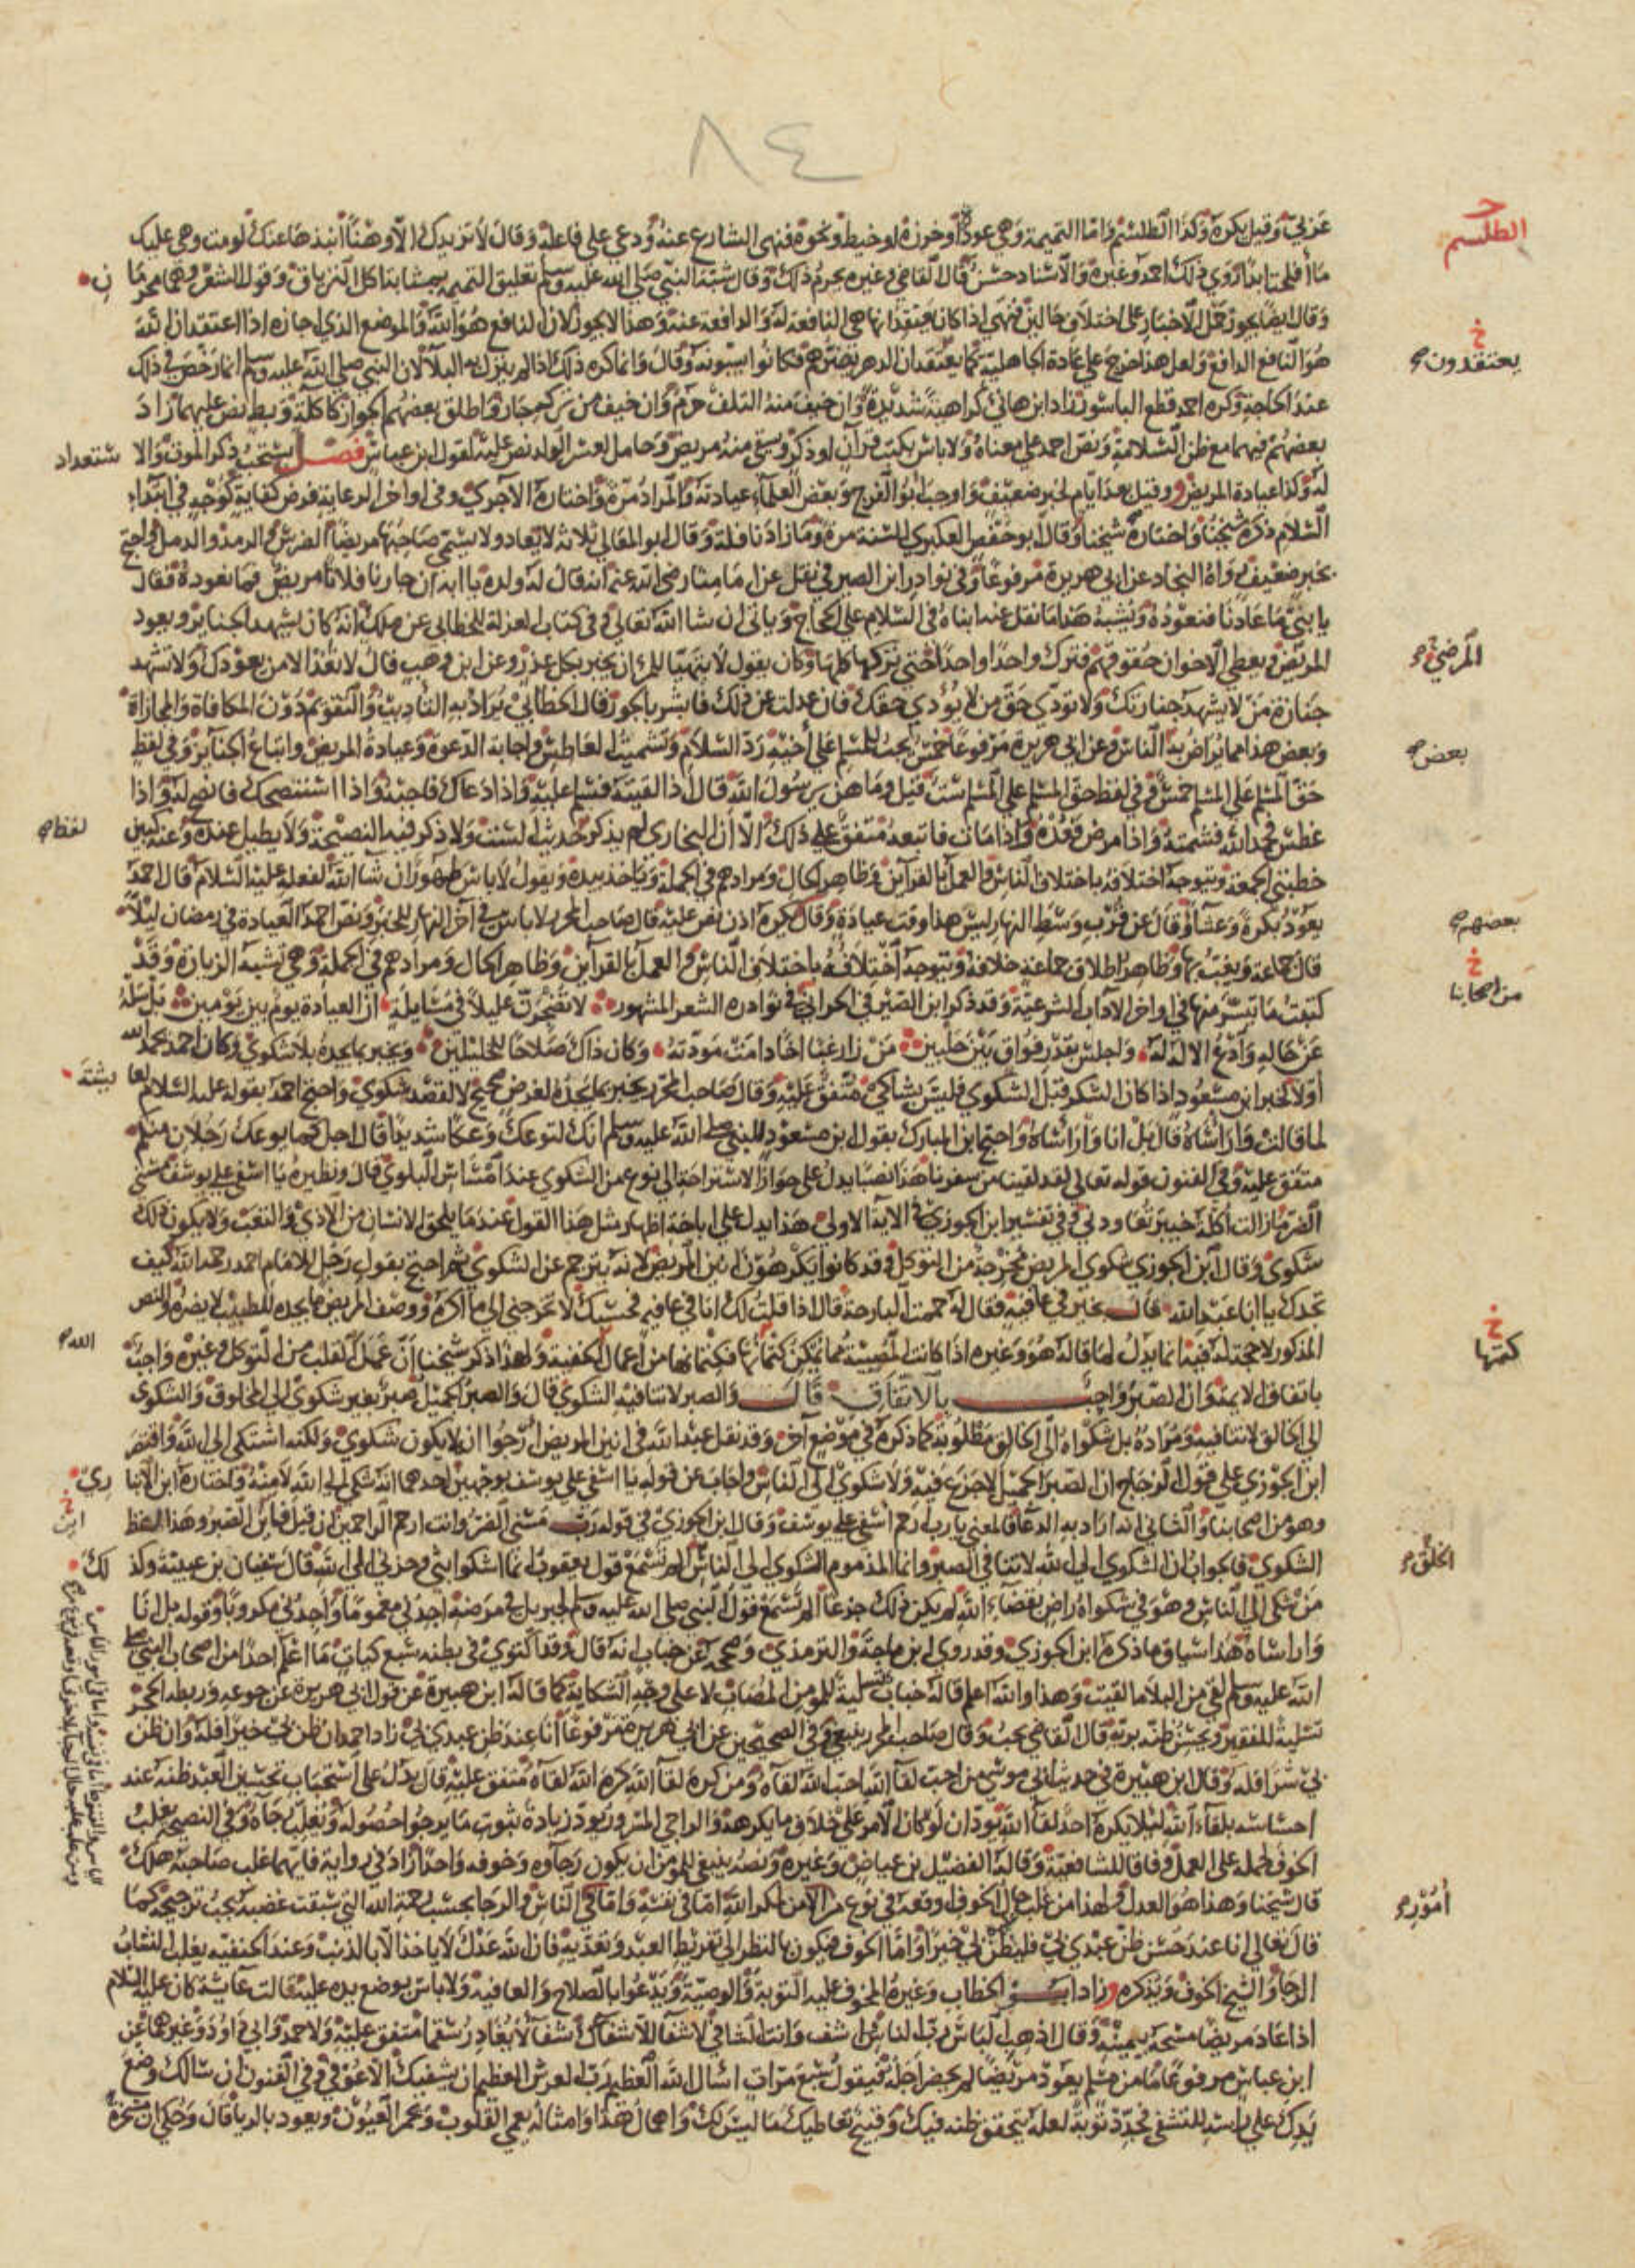 ٨٤
عربي وقيل يكره وكذا الطلسم واما التميمة وهي عوذة او خرزة او خيط ونحوه فنهى الشارع عنه ودعى على فاعله وقال لا تزيدك الا وهنا انبذها عنك لو مت وهي عليك
ما أفلحت ابدا روى ذلك احمد وغيره والاسناد حسن قال القاضي وغيره يحرم ذلك وقال شبه النبي صلى الله عليه وسلم تعليق التميمة بمثابة اكل الترياق وقول الشعر وهما محرمان
وقال ايضا يجوز حمل الاخبار على اختلاف حالين فنهى اذا كان يعتقد انها هي النافعة له والدافعة عنه وهذا لا يجوز لان النافع هو الله والموضع الذي اجازه اذا اعتقد ان الله
هو النافع الدافع ولعل هذا خرج على عادة الجاهلية كما يعتقد ان الدهر يضرهم فكانوا يسبونه وقال وانما كره ذلك اذا لم ينزل به البلا لان النبي صلى الله عليه وسلم انما رخص في ذلك
عند الحاجة وكره احمد قطع الباسور زاد ابن هانئ كراهية شديدة وان خيف منه التلف حرم وان خيف من تركه جاز واطلق بعضهم الجواز كاكلة وبط نص عليهما زاد
بعضهم فيهما مع ظن السلامة ونص احمد على معناه ولا باس بكتب قرآن او ذكر ويسقى منه مريض وحامل لعسر الولد نص عليه لقول ابن عباس فصل يستحب ذكر الموت والاستعداد
له وكذا عيادة المريض وقيل بعد ايام لخبر ضعيف واوجب ابو الفرج وبعض العلماء عيادته والمراد مرة واختاره الآجري وفي اواخر الرعاية فرض كفاية كوجه في ابتداء
السلام ذكره شيخنا واختاره شيخنا وقال ابو حفص العكبري السنة مرة وما زاد نافلة وقال ابو المعالي ثلاثة لا تعاد ولا يسمى صاحبها مريضا الضرس والرمد والدمل واحتج
بخبر ضعيف رواه النجاد عن ابي هريرة مرفوعا وفي نوادر ابن الصيرفي نقل عن امامنا رضي الله عنه انه قال له ولده يا ابه ان جارنا فلانا مريض فما نعوده فقال
يا بني ما عادنا فنعوده ويشبه هذا ما نقل عنه ابناه في السلام على الحجاج وياتي ان شا الله تعالى وفي كتاب العزلة للخطابي عن ملك انه كان يشهد الجنايز ويعود
المريض ويعطي الاخوان حقوقهم فترك واحدا واحدا حتى تركها كلها وكان يقول لا يتهيا للمرء ان يخبر بكل عذر وعن ابن وهب قال لا تعد الا من يعودك ولا تشهد
جنازة من لا يشهد جنازتك ولا تؤدي حق من لا يؤدي حقك فان عدلت عن ذلك فابشر بالجور قال الخطابي يراد به التاديب والتقويم دون المكافاة والمجازاة
وبعض هذا مما يراض به الناس وعن ابي هريرة مرفوعا خمس تجب للمسلم على أخيه رد السلام وتشميت العاطس واجابة الدعوة وعيادة المريض واتباع الجنايز وفي لفظ
حق المسلم على المسلم خمس وفي لفظ حق المسلم على المسلم ست قيل وما هن يا رسول الله قال اذا لقيته فسلم عليه واذا دعاك فاجبه واذا استنصحك فانصح له واذا
عطس فحمد الله فشمته واذا مرض فعده واذا مات فاتبعه متفق على ذلك الا ان البخاري لم يذكر حديث الست ولا ذكر فيه النصيحة ولا يطيل عنده وعنه كبين
خطبتي الجمعة ويتوجه اختلافه باختلاف الناس والعمل بالقرآين وظاهر الحال ومرادهم في الجملة وياخذ بيده ويقول لا باس طهور ان شا الله لفعله عليه السلام قال احمد
يعود بكرة وعشا وقال عن قرب وسط النهار ليس هذا وقت عيادة وقال يكره اذن نص عليه قال صاحب المحرر لا باس به في آخر النهار للخبر ونص احمد العيادة في رمضان ليلا
قال جماعة ويغب بها وظاهر اطلاق جماعة خلافه ويتوجه اختلافه باختلاف الناس والعمل بالقرآين وظاهر الحال ومرادهم في الجملة وهي تشبه الزيارة وقد
كتبت ما تيسر منها في اواخر الآداب الشرعية وقد ذكر ابن الصيرفي الحراني في نوادره الشعر المشهور لا تضجرن عليلا في مسايلة ان العيادة يوم بين يومين بل سله
عن حاله وادع الاله له واجلس بقدر فواق بين حلبين من زار غبا اخا دامت مودته وكان ذاك صلاحا للخليلين ويخبر بما يجده بلا شكوى وكان احمد يحمد الله
أولا لخبر ابن مسعود اذا كان الشكر قبل الشكوى فليس بشاك متفق عليه وقال صاحب المحرر يخبر بما يجده لغرض صحيح لا لقصد شكوى واحتج احمد بقوله عليه السلام لعايشة
لما قالت وارأساه قال بل انا وارأساه واحتج ابن المبارك بقول ابن مسعود للنبي صلى الله عليه وسلم انك لتوعك وعكا شديدا قال اجل كما يوعك رجلان منكم
متفق عليه وفي الفنون قوله تعالى لقد لقينا من سفرنا هذا نصبا يدل على جواز الاستراحة الى نوع من الشكوى عند امساس البلوى قال ونظيره يا اسفى على يوسف مسني
الضر ما زالت أكلة خيبر تعاودني وفي تفسير ابن الجوزي في الآية الاولى هذا يدل على اباحة اظهار مثل هذا القول عندما يلحق الانسان من الاذى والتعب ولا يكون ذلك
شكوى وقال ابن الجوزي شكوى المريض مخرجة من التوكل وقد كانوا يكرهون انين المريض لانه يترجم عن الشكوى ثم احتج بقول رجل للامام احمد رحمه الله كيف
تجدك يا ابا عبد الله قال بخير في عافية فقال له حممت البارحة قال اذا قلت لك انا في عافية فحسبك لا تخرجني الى ما أكره ووصف المريض ما يجده للطبيب لا يضره والنص
المذكور لا حجة له فيه انما يدل لما قاله هو وغيره اذا كانت المصيبة مما يمكن كتمانها فكتمانها من اعمال الله الخفية ولهذا ذكر شيخنا أن عمل القلب من التوكل وغيره واجب
باتفاق الايمة وان الصبر واجب بالاتفاق قال والصبر لا تنافيه الشكوى قال والصبر الجميل صبر بغير شكوى الى المخلوق والشكوى
الى الخالق لا تنافيه ومراده بل شكواه الى الخالق مطلوبة كما ذكره في موضع آخر وقد نقل عبد الله في انين المريض ارجوا ان لا يكون شكوى ولكنه اشتكى الى الله واقتصر
ابن الجوزي على قول الزجاج ان الصبر الجميل لا جزع فيه ولا شكوى الى الناس واجاب عن قوله يا اسفى على يوسف بوجهين احدهما انه شكى الى الله لا منه واختاره ابن الانباري
وهو من اصحابنا والثاني انه اراد به الدعا فالمعنى يا رب ارحم اسفى على يوسف وقال ابن الجوزي في قوله رب مسني الضر وانت ارحم الراحمين ان قيل فاين الصبر وهذا لفظ
الشكوى فالجواب ان الشكوى الى الله لا تنافي الصبر وانما المذموم الشكوى الى الناس الم تسمع قول يعقوب انما اشكوا بثي وحزني الى الله قال سفيان بن عيينة وكذلك
من شكى الى الناس وهو في شكواه راض بقضاء الله لم يكن ذلك جزعا الم تسمع قول النبي صلى الله عليه وسلم لجبريل في مرضه اجدني مغموما واجدني مكروبا وقوله بل انا
وارأساه هذا سياق ما ذكره ابن الجوزي وقد روى ابن ماجة والترمذي وصححه عن خباب انه قال وقد اكتوى في بطنه سبع كيات ما اعلم احدا من اصحاب النبي صلى
الله عليه وسلم لقي من البلا ما لقيت وهذا والله اعلم قاله خباب تسلية للمؤمن المصاب لا على وجه الشكاية كما قاله ابن هبيرة عن قول ابي هريرة عن جوعه وربطه الحجر
تسلية للفقير ويحسن ظنه بربه قال القاضي يجب وقال صاحب المحرر ينبغي وفي الصحيحين عن ابي هريرة مرفوعا أنا عند ظن عبدي بي زاد احمد ان ظن بي خيرا فله وان ظن
بي شرا فله وقال ابن هبيرة في حديث ابي موسى من احب لقا الله احب الله لقاه ومن كره لقا الله كره الله لقاه متفق عليه قال يدل على استحباب تحسين العبد ظنه عند
احساسه بلقاء الله لئلا يكره احد لقا الله يود ان لو كان الامر على خلاف ما يكرهه والراجي المسرور يود زيادة ثبوت ما يرجوا حصوله ويغلب رجاه وفي النصيحة يغلب
الخوف لحمله على العمل وفاقا للشافعية وقاله الفضيل بن عياض وغيره ونصه ينبغي للمؤمن ان يكون رجاؤه وخوفه واحدا زاد في رواية فايهما غلب صاحبه هلك
قال شيخنا وهذا هو العدل ولهذا من غلب حال الخوف اوقعه في نوع من الامن لمكر الله اما في نفسه واما في الناس والرجا بحسب رحمة الله التي سبقت غضبه يجب ترجيحه كما
قال تعالى انا عند حسن ظن عبدي بي فليظن بي خيرا واما الخوف فيكون بالنظر الى تفريط العبد وتعديه فان الله عدل لا ياخذ الا بالذنب وعند الحنفية يغلب الشاب
الرجا والشيخ الخوف ويذكره زاد ابو الخطاب وغيره المخوف عليه التوبة والوصية ويدعوا بالصلاح والعافية ولا باس بوضع يده عليه قالت عايشة كان عليه السلام
اذا عاد مريضا مسحه بيمينه وقال اذهب الباس رب الناس اشف وانت الشافي لا شفا الا شفاك شفا لا يغادر سقما متفق عليه ولاحمد وابي داود وغيرهما عن
ابن عباس مرفوعا ما من مسلم يعود مريضا لم يحضر اجله فيقول سبع مرات اسال الله العظيم رب العرش العظيم ان يشفيك الا عوفي وفي الفنون ان سالك وضع
يدك على راسه للتشفي فجدد توبة لعله يتحقق ظنه فيك وقبيح تعاطيك ما ليس لك واهمال هذا وامثاله يعمي القلوب ويخمر العيون ويعود بالريا قال وحكي ان شجرة
خ
الطلسم
خ
يعتقدون
المرضى
بعض
لفظ
بعضهم
خ
من اصحابنا
خ
كتمها
الله
الخلق
أمور